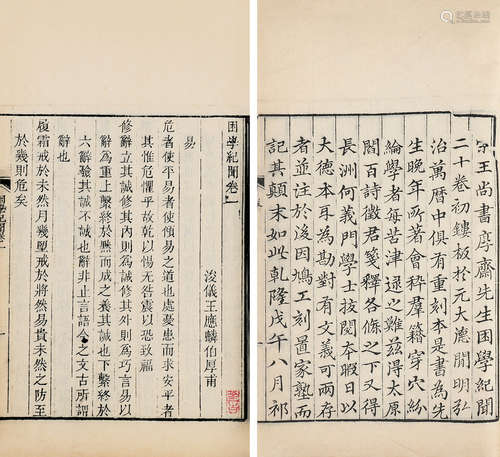 宋王尚書厚齋先生困學紀聞
二十卷初鏤板於元大德間明弘
治萬曆中俱有重刻本是書為先
生晚年所著會稡群籍穿穴紛
綸學者每苦津逮之難茲得太原
閻百詩徵君箋釋各條之下又得
長洲何義門學士扳閱本暇日以
大德本再為勘對有文義可兩存
者並著於後因鳩工刻置家塾而
記其顛末如此乾隆戊午八月祁
困學紀聞卷一
浚儀王應麟伯厚甫
易
危者使平易者使傾易之道也處憂患而求安平者
其惟危懼乎故乾以惕无咎震以恐致福
修辭立其誠修其內則為誠修其外則為巧言易以
辭為重上繫終於黙而成之養其誠也下繫終於
六辭驗其誠不誠也辭非止言語今之文古所謂
辭也
履霜戒於未然月幾望戒於將然易貴未然之防至
於幾則危矣